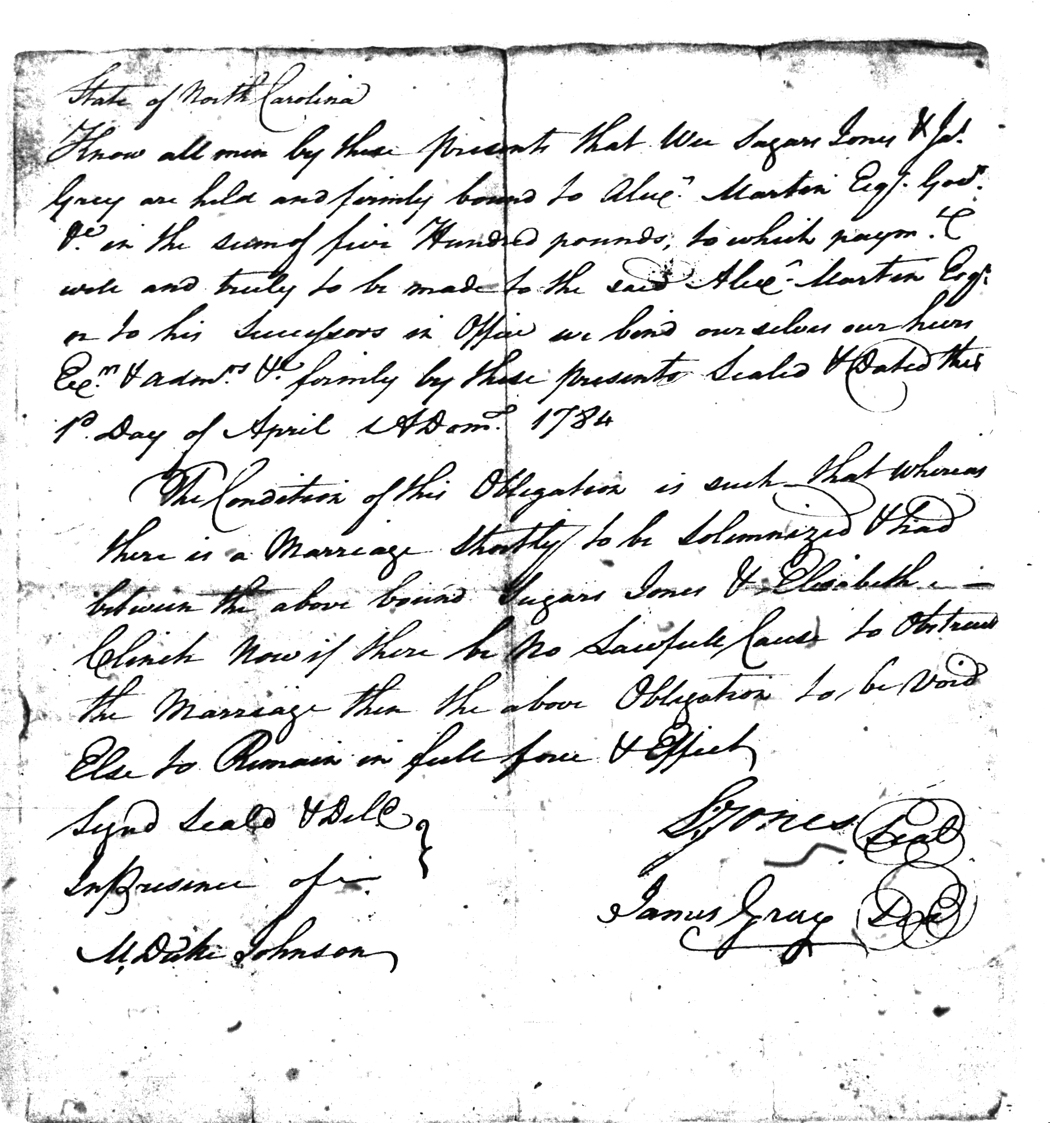 State of North Carolina
Know all men by these presents that Wee Sugars Jones & Jas.
Grey are held and firmly bound to Alexr. Martin Esqr. Govr.
&c in the sum of five Hundred pounds, to which paymt.
well and truly to be made to the said Alexr. Martin Esqr.
or to his Successors in Office we bind ourselves our heirs
Exrs. & Admrs. &c firmly by these presents Sealed & Dated this
1st. Day of April ADom. 1784
The Condition of this Obligation is such that whereas
there is a Marriage Shortly to be Solemnized & had
between the above bound Sugars Jones & Elisabeth
Clinch Now if there be No Lawfull Cause to Obstruct
the Marriage then the above Obligation to be Void
Else to Remain in full force & Effect
Signd Seald & Deld
In Presence of
M. Duke Johnson
S. Jones Seal
James Gray Seal